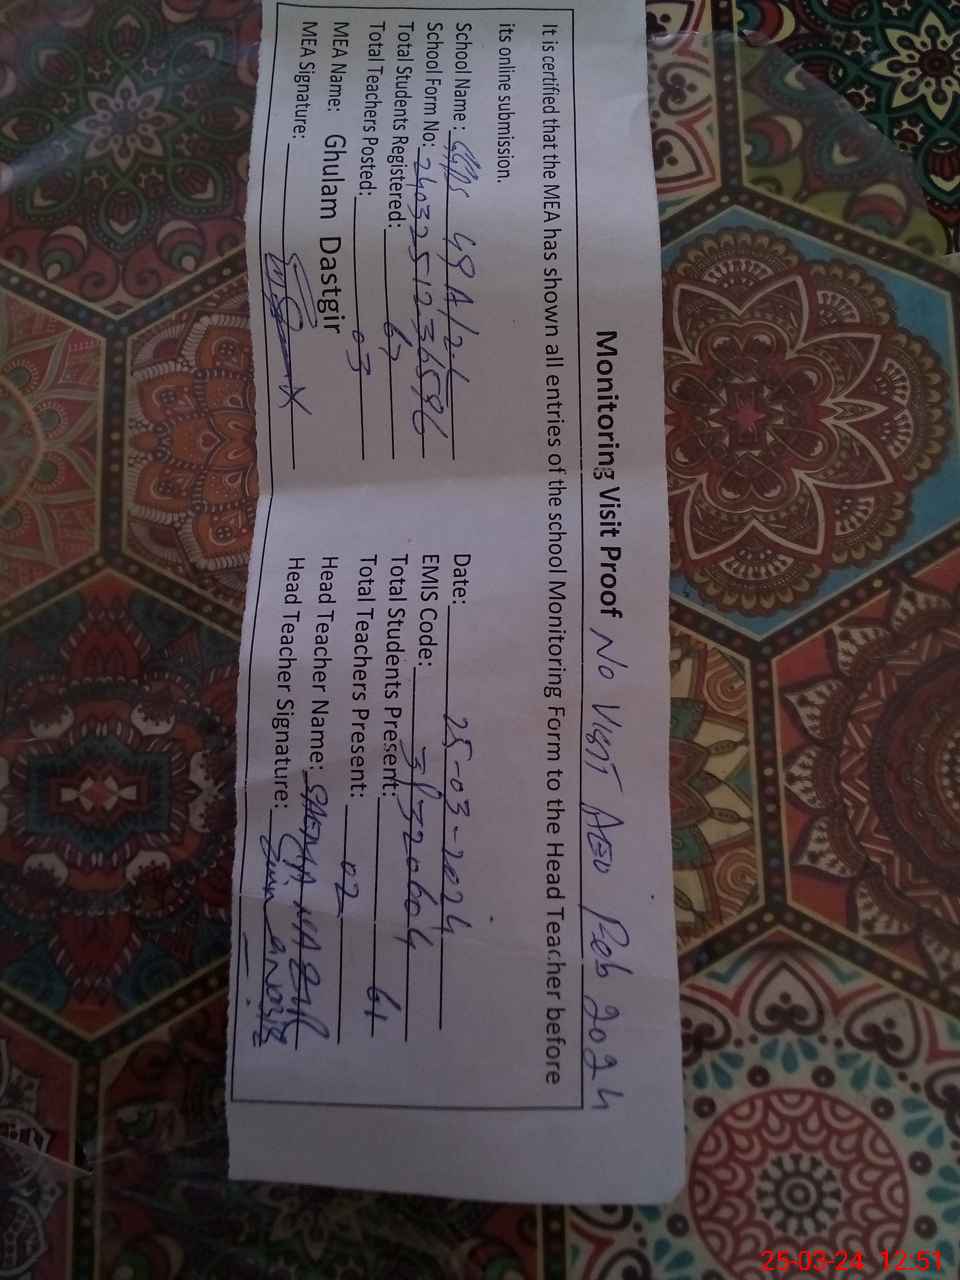 Monitoring Visit Proof No Visit AEO Feb 2024
It is certified that the MEA has shown all entries of the school Monitoring Form to the Head Teacher before
its online submission.
School Name: 49 A/2.L Date: 25-03-2024
School Form No: 2403251236596 EMIS Code:
Total Students Registered: 67 Total Students Present: 61
Total Teachers Posted: 03 Total Teachers Present: 02
MEA Name: Ghulam Dastgir Head Teacher Name:
MEA Signature: Head Teacher Signature:
25-03-24 12:51